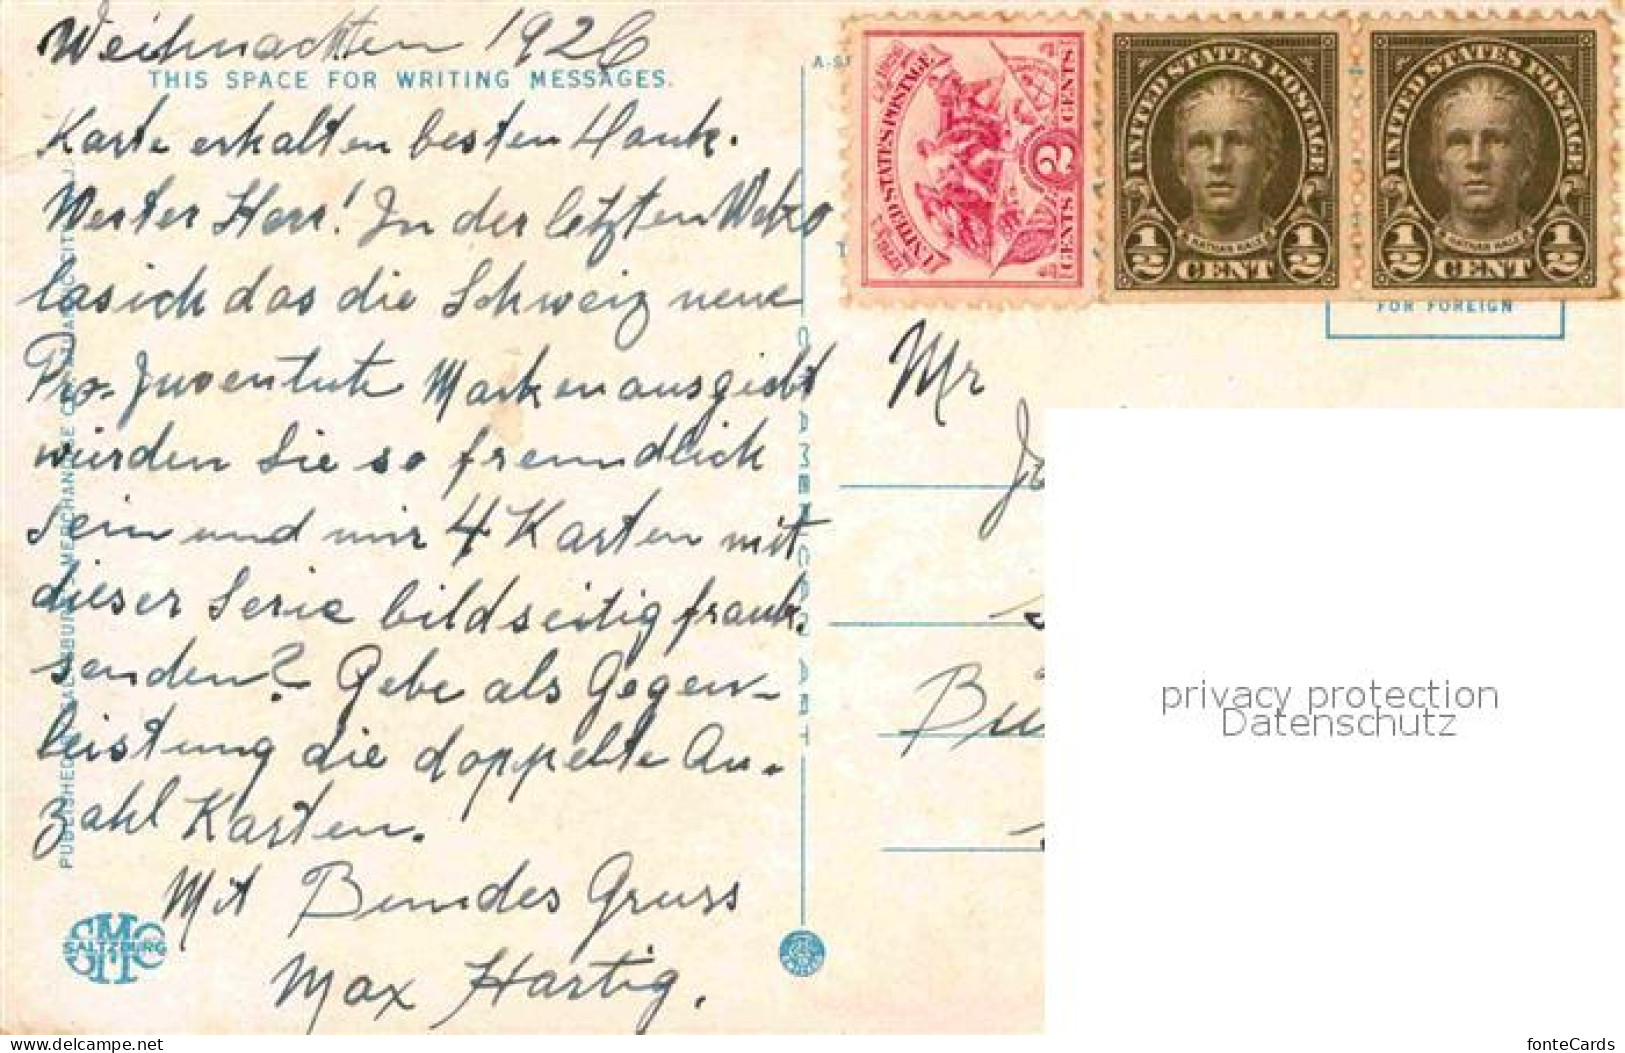 Weihnachten 1926
THIS SPACE FOR WRITING MESSAGES.
Karte erhalten besten Dank.
Werter Herr! In der letzten
las ich das die Schweiz neue
Pro-Juventute Marken ausgiebt
würden Sie so freundlich
sein und mir 4 Karten mit
dieser Serie bildseitig frank.
senden? Gebe als Gegen-
leistung die doppelte An-
zahl Karten.
Mit Bundes Gruss
Max Hartig.
SALTZBURG
C.T. AMERICAN ART
UNITED STATES POSTAGE
CENTS 2 CENTS
UNITED STATES POSTAGE
NATHAN HALE
1/2 CENT 1/2
UNITED STATES POSTAGE
NATHAN HALE
1/2 CENT 1/2
FOR FOREIGN
Mr
privacy protection
Datenschutz
www.delcampe.net
fonteCards